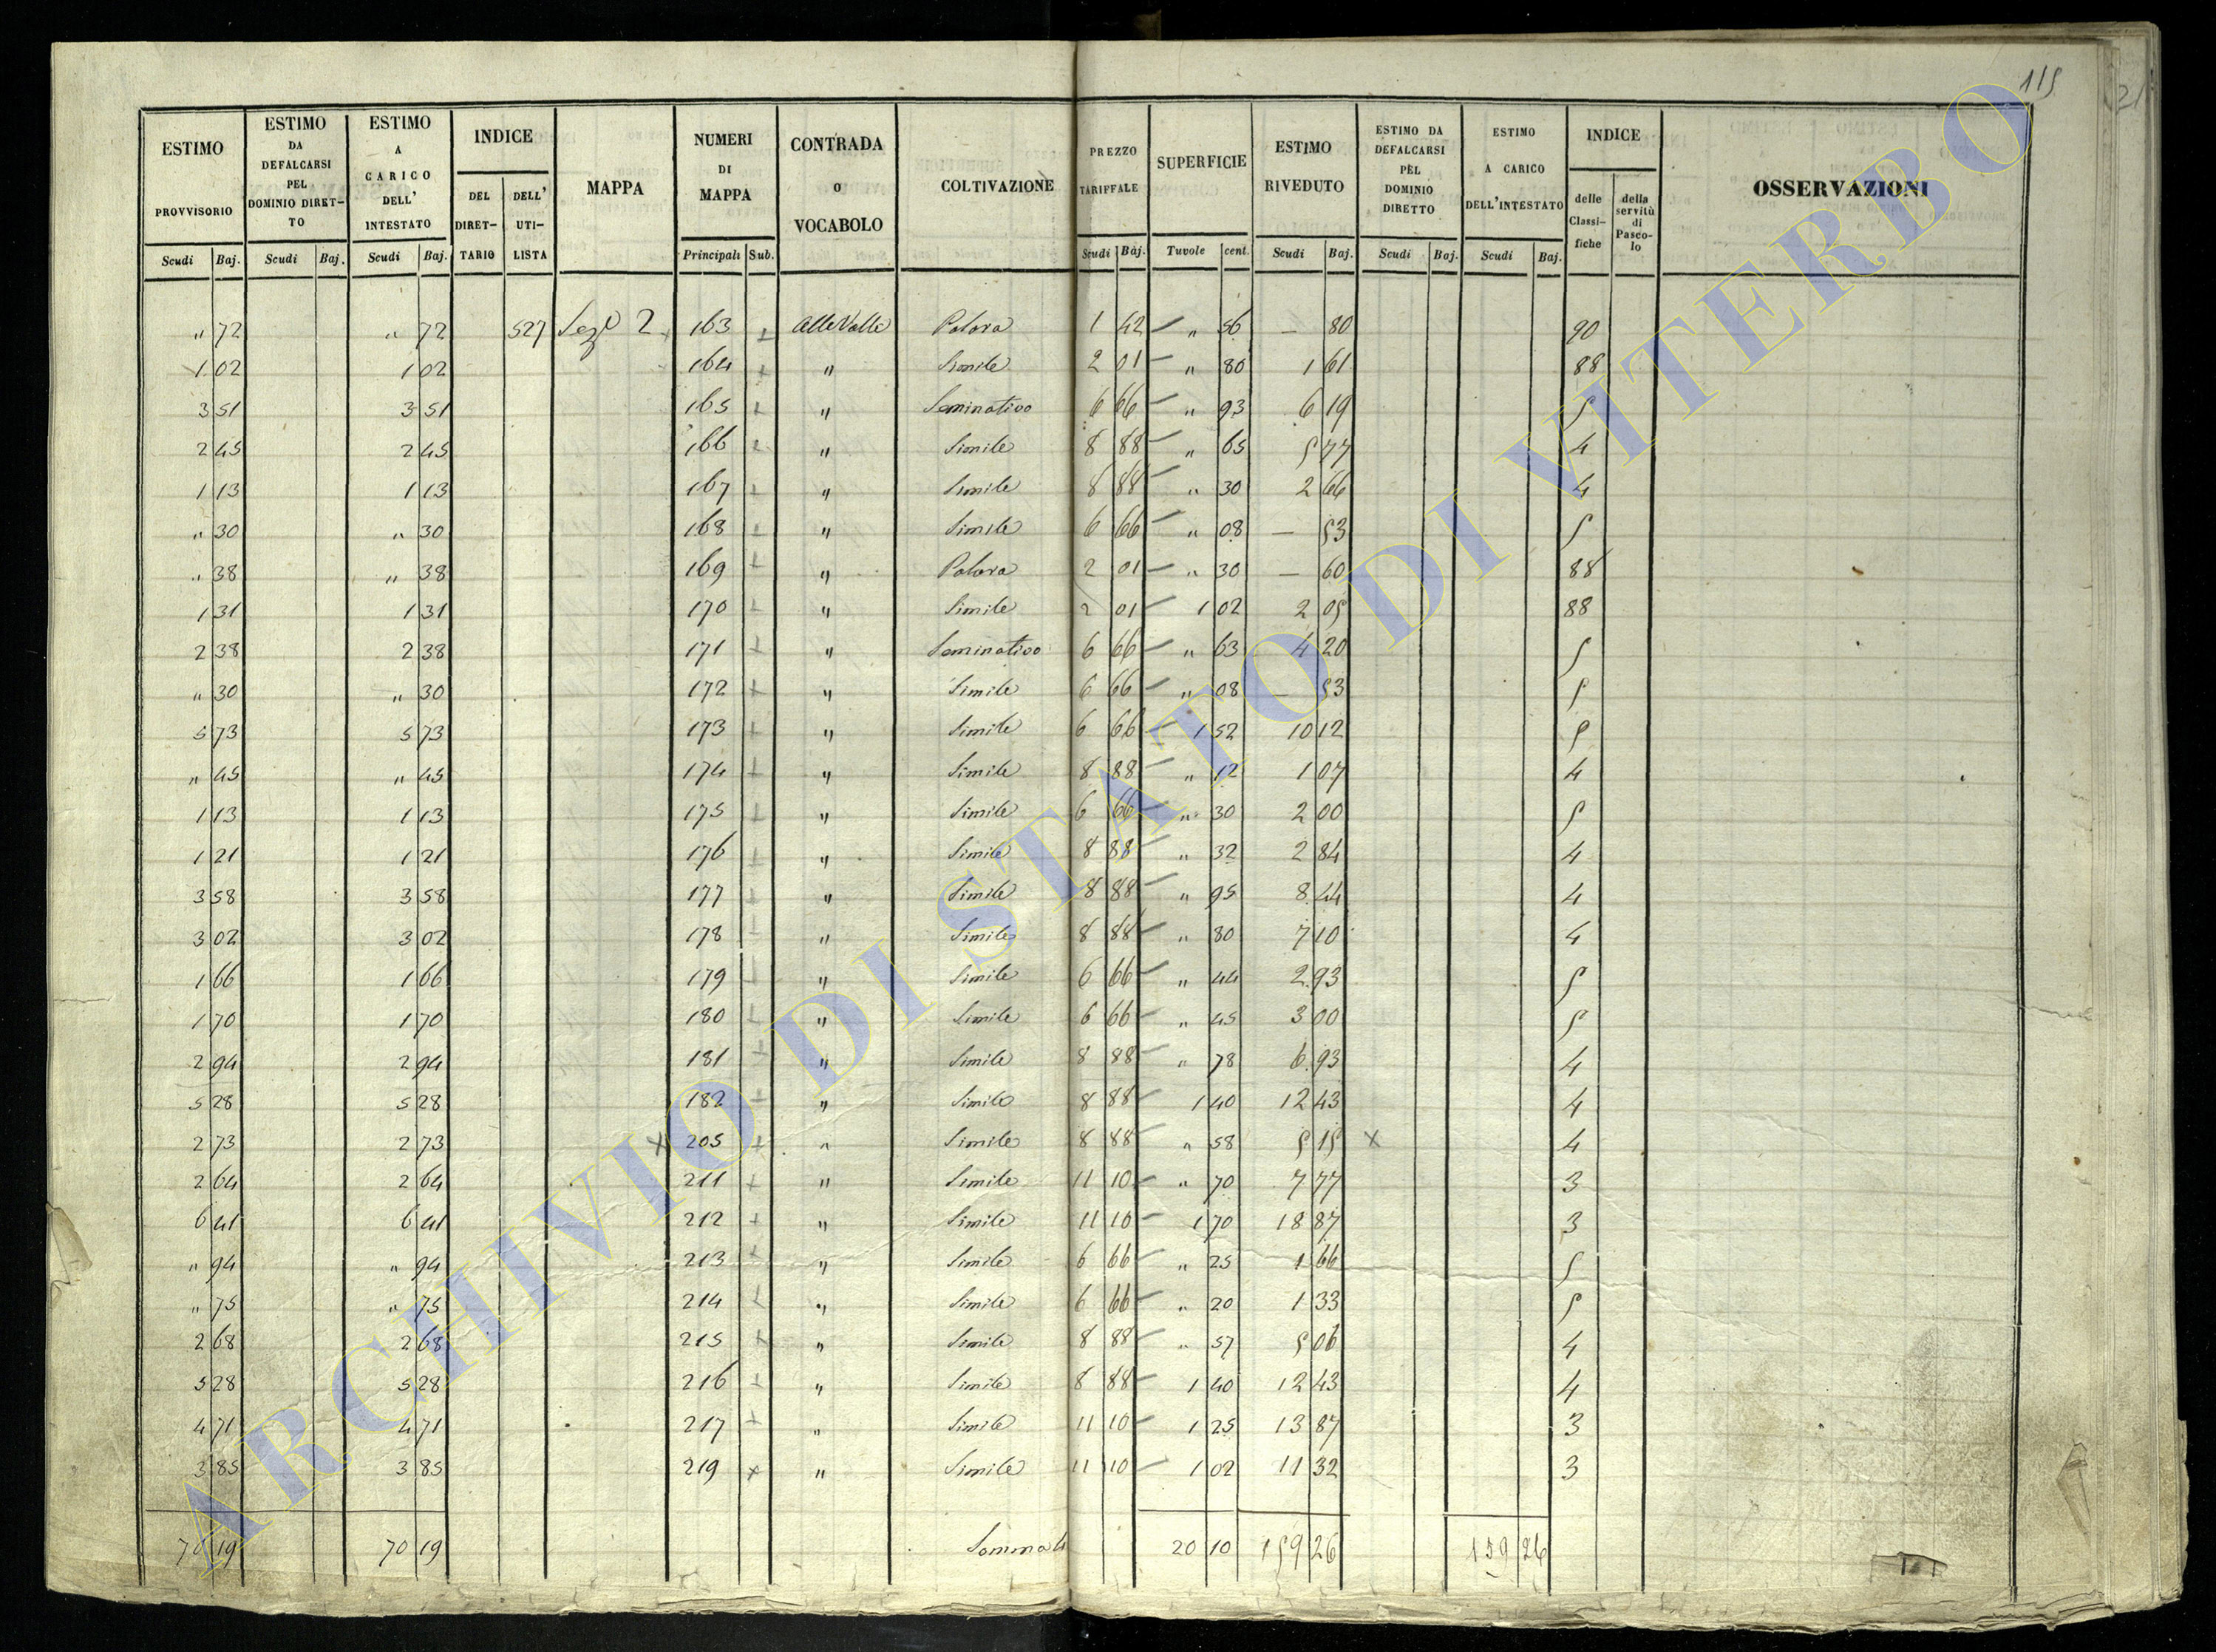 115
21
ESTIMO PROVVISORIO Scudi Baj. | ESTIMO DA DEFALCARSI PEL DOMINIO DIRET-TO Scudi Baj. | ESTIMO A CARICO DELL' INTESTATO Scudi Baj. | INDICE DEL DIRET-TARIO DELL' UTI-LISTA | MAPPA | NUMERI DI MAPPA Principali Sub. | CONTRADA O VOCABOLO | COLTIVAZIONE | PREZZO TARIFFALE Scudi Baj. | SUPERFICIE Tavole cent. | ESTIMO RIVEDUTO Scudi Baj. | ESTIMO DA DEFALCARSI PEL DOMINIO DIRETTO Scudi Baj. | ESTIMO A CARICO DELL'INTESTATO Scudi Baj. | INDICE delle Classi-fiche della servitù di Pasco-lo | OSSERVAZIONI
" 72 " 72 527 Sez.e 2 163 + Alle Valle Palara 1 42 — " 56 — 80 90
1 02 1 02 164 + " Simile 2 01 — " 80 1 61 88
3 51 3 51 165 + " Seminativo 6 66 — " 93 6 19 5
2 45 2 45 166 + " Simile 8 88 — " 65 5 77 4
1 13 1 13 167 + " Simile 8 88 — " 30 2 66 4
" 30 " 30 168 + " Simile 6 66 — " 08 — 53 5
" 38 " 38 169 + " Palara 2 01 — " 30 — 60 88
1 31 1 31 170 + " Simile 2 01 — 1 02 2 05 88
2 38 2 38 171 + " Seminativo 6 66 — " 63 4 20 5
" 30 " 30 172 + " Simile 6 66 — " 08 — 53 5
5 73 5 73 173 + " Simile 6 66 — 1 52 10 12 5
" 45 " 45 174 + " Simile 8 88 — " 12 1 07 4
1 13 1 13 175 + " Simile 6 66 — " 30 2 00 5
1 21 1 21 176 + " Simile 8 88 — " 32 2 84 4
3 58 3 58 177 + " Simile 8 88 — " 95 8 44 4
3 02 3 02 178 + " Simile 8 88 — " 80 7 10 4
1 66 1 66 179 + " Simile 6 66 — " 44 2 93 5
1 70 1 70 180 + " Simile 6 66 — " 45 3 00 5
2 94 2 94 181 + " Simile 8 88 — " 78 6 93 4
5 28 5 28 182 + " Simile 8 88 — 1 40 12 43 4
2 73 2 73 x 205 + " Simile 8 88 — " 58 5 15 x 4
2 64 2 64 211 + " Simile 11 10 — " 70 7 77 3
6 41 6 41 212 + " Simile 11 10 — 1 70 18 87 3
" 94 " 94 213 + " Simile 6 66 — " 25 1 66 5
" 75 " 75 214 + " Simile 6 66 — " 20 1 33 5
2 68 2 68 215 + " Simile 8 88 — " 57 5 06 4
5 28 5 28 216 + " Simile 8 88 — 1 40 12 43 4
4 71 4 71 217 + " Simile 11 10 — 1 25 13 87 3
3 85 3 85 219 x " Simile 11 10 — 1 02 11 32 3
70 19 70 19 20 10 159 26 159 26
ARCHIVIO DI STATO DI VITERBO